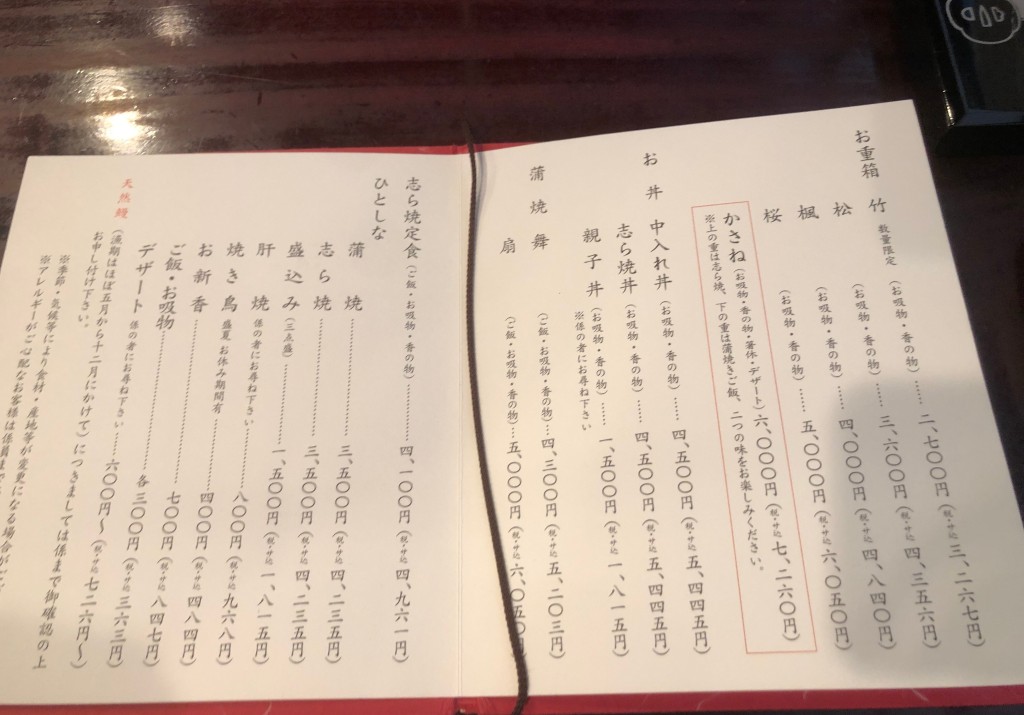 お重箱
竹 数量限定 (お吸物・香の物)…… 二、七〇〇円 (税・サ込 三、二六七円)
松 (お吸物・香の物)…… 三、六〇〇円 (税・サ込 四、三五六円)
楓 (お吸物・香の物)…… 四、〇〇〇円 (税・サ込 四、八四〇円)
桜 (お吸物・香の物)…… 五、〇〇〇円 (税・サ込 六、〇五〇円)
かさね (お吸物・香の物・箸休・デザート) 六、〇〇〇円 (税・サ込 七、二六〇円)
※上の重は志ら焼、下の重は蒲焼きご飯、二つの味をお楽しみください。
お丼
中入れ丼 (お吸物・香の物)…… 四、五〇〇円 (税・サ込 五、四四五円)
志ら焼丼 (お吸物・香の物)…… 四、五〇〇円 (税・サ込 五、四四五円)
親子丼 (お吸物・香の物)…… 一、五〇〇円 (税・サ込 一、八一五円)
※係の者にお尋ね下さい
蒲焼
舞 (ご飯・お吸物・香の物)…… 四、三〇〇円 (税・サ込 五、二〇三円)
扇 (ご飯・お吸物・香の物)…… 五、〇〇〇円 (税・サ込 六、〇五〇円)
志ら焼定食 (ご飯・お吸物・香の物) …… 四、一〇〇円 (税・サ込 四、九六一円)
ひとしな
蒲焼 …… 三、五〇〇円 (税・サ込 四、二三五円)
志ら焼 …… 三、五〇〇円 (税・サ込 四、二三五円)
盛込み (三点盛) …… 一、五〇〇円 (税・サ込 一、八一五円)
肝焼 係の者にお尋ね下さい …… 八〇〇円 (税・サ込 九六八円)
焼き鳥 盛夏 お休み期間有 …… 四〇〇円 (税・サ込 四八四円)
お新香 …… 七〇〇円 (税・サ込 八四七円)
ご飯・お吸物 …… 各 三〇〇円 (税・サ込 三六三円)
デザート 係の者にお尋ね下さい …… 六〇〇円〜 (税・サ込 七二六円〜)
天然鰻 (漁期はほぼ五月から十二月にかけて)につきましては係まで御確認の上
お申し付け下さい。
※季節・気候等により食材・産地等が変更になる場合がござ
※アレルギーがご心配なお客様は係員まで